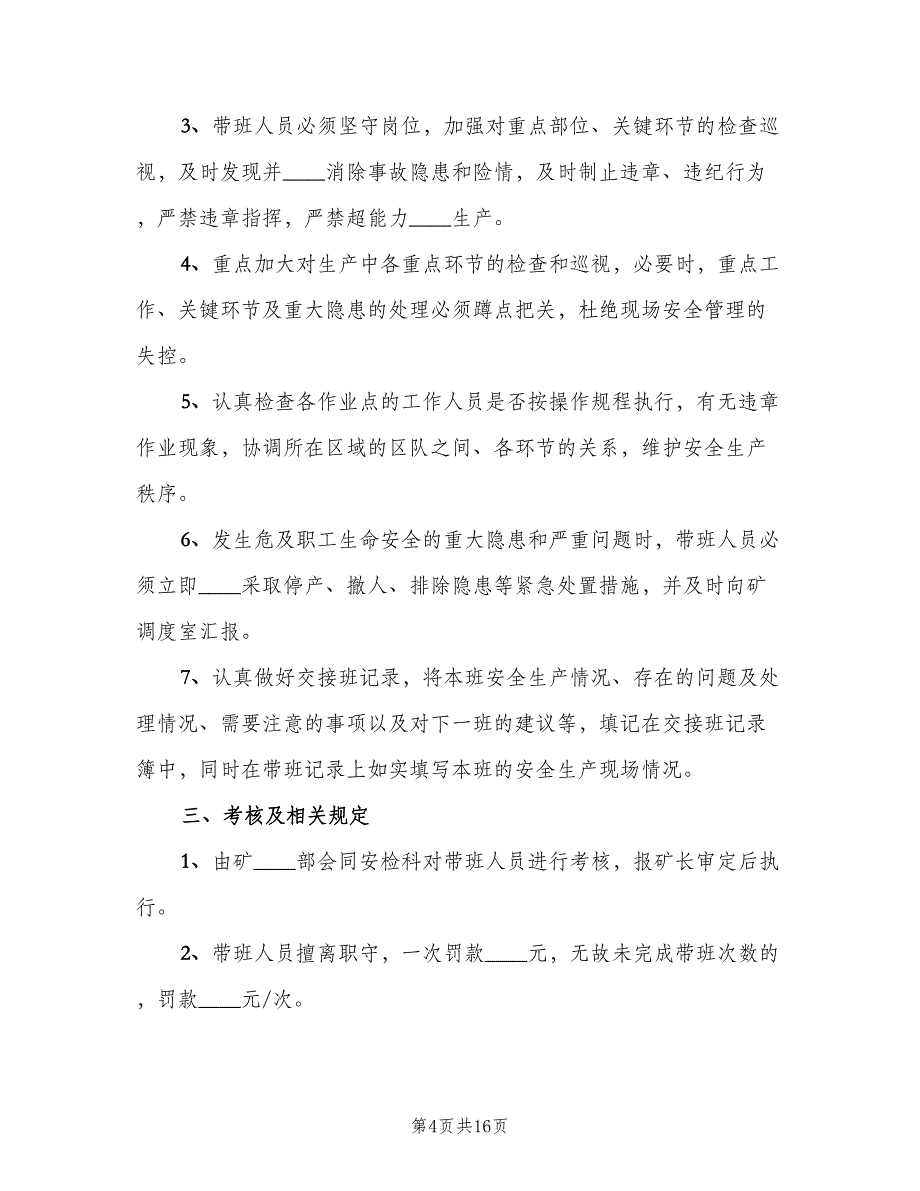 3、带班人员必须坚守岗位，加强对重点部位、关键环节的检查巡
视，及时发现并____消除事故隐患和险情，及时制止违章、违纪行为
，严禁违章指挥，严禁超能力____生产。
4、重点加大对生产中各重点环节的检查和巡视，必要时，重点工
作、关键环节及重大隐患的处理必须蹲点把关，杜绝现场安全管理的
失控。
5、认真检查各作业点的工作人员是否按操作规程执行，有无违章
作业现象，协调所在区域的区队之间、各环节的关系，维护安全生产
秩序。
6、发生危及职工生命安全的重大隐患和严重问题时，带班人员必
须立即____采取停产、撤人、排除隐患等紧急处置措施，并及时向矿
调度室汇报。
7、认真做好交接班记录，将本班安全生产情况、存在的问题及处
理情况、需要注意的事项以及对下一班的建议等，填记在交接班记录
簿中，同时在带班记录上如实填写本班的安全生产现场情况。
三、考核及相关规定
1、由矿____部会同安检科对带班人员进行考核，报矿长审定后执
行。
2、带班人员擅离职守，一次罚款____元，无故未完成带班次数的
，罚款____元/次。
第4页共16页